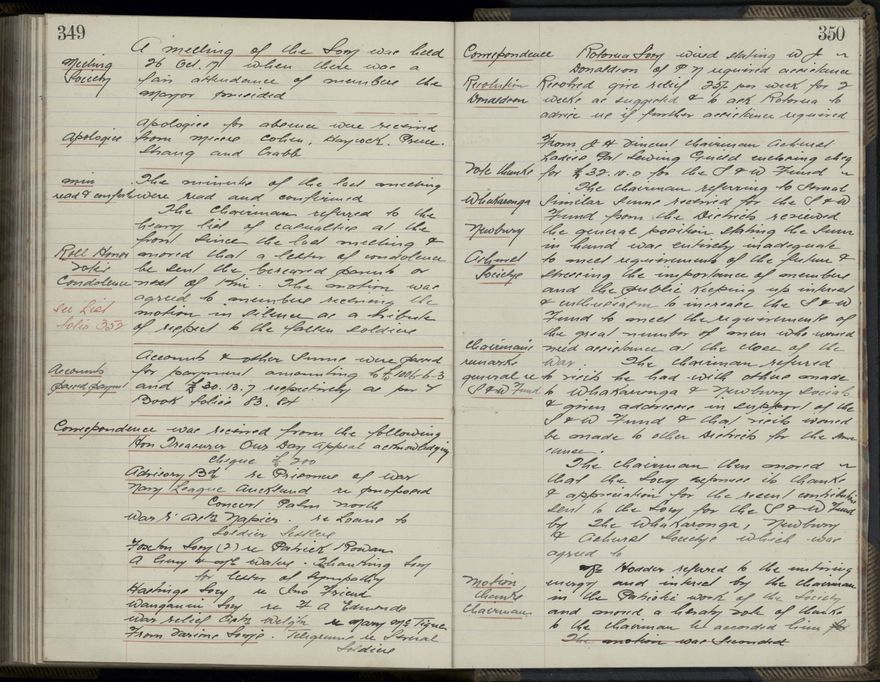 349
Meeting
Society
A meeting of the Socy was held
26 Oct. 17 when there was a
fair attendance of members the
Mayor presided
Apologies
Apologies for absence were received
from Messrs Cohen, Haycock, Preece,
Strang and Crabb
Min
read & confirm
The minutes of the last meeting
were read and confirmed
The Chairman referred to the
heavy list of casualties at the
front since the last meeting &
Roll Honor
Votes
Condolence
moved that a letter of condolence
be sent the bereaved parents or
next of kin. The motion was
See List
folio 352
agreed to members receiving the
motion in silence as a tribute
of respect to the fallen soldiers
Accounts
passed payment
Accounts & other sums were passed
for payment amounting to
and £30.13.7 respectively as per
Book folios 83. 84
Correspondence was received from the following
Hon Treasurer Our Day Appeal acknowledging
cheque £200
Advisory Bd re Prisoners of War
Navy League Auckland re proposed
Concert Palm North
War R. Assn Napier. re Loans to
Soldier Settlers
Foxton Socy (2) re Patrick Rowan
A Guy & Waters. Thanking Socy
for letter of sympathy
Hastings Socy re Jno Friend
Wanganui Socy re F A Edmonds
War relief Assn Welgtn re Mary McTigue
From Various Socys. Telegrams re Several
Soldiers
350
Correspondence
Rotorua Socy wired stating W J
Donaldson of P N required assistance
Resolution
Donaldson
Resolved give relief 25/- per week for 2
weeks as suggested & to ask Rotorua to
advise us if further assistance required
From J H Vincent Chairman Ashurst
Ladies Pat Sewing Guild enclosing chq
Vote thanks
for £32.10.0 for the S & W Fund
The Chairman referring to several
Whakaronga
similar sums received for the S & W
Fund from the Districts reviewed
Newbury
the general position stating the sum
in hand was entirely inadequate
Ashurst
Societys
to meet requirements of the future &
stressing the importance of members
and the public keeping up interest
& enthusiasm to increase the S & W
Fund to meet the requirements of
the great number of men who would
Chairmans
remarks
general re
S & W Fund
need assistance at the close of the
war. The Chairman referred
to visits he had with others made
to Whakaronga & Newbury Socials
& given addresses in support of the
S & W Fund & that visits would
be made to other Districts for the same
cause.
The Chairman then moved
that the Socy expresses its thanks
& appreciation for the recent contributions
sent to the Socy for the S & W Fund
by The Whakaronga, Newbury
& Ashurst Societys which was
agreed to
Motion
thanks
Chairman
Hodder referred to the untiring
energy and interest by the Chairman
in the Patriotic work of the Society
and moved a hearty vote of thanks
to the Chairman be accorded him
The motion was seconded